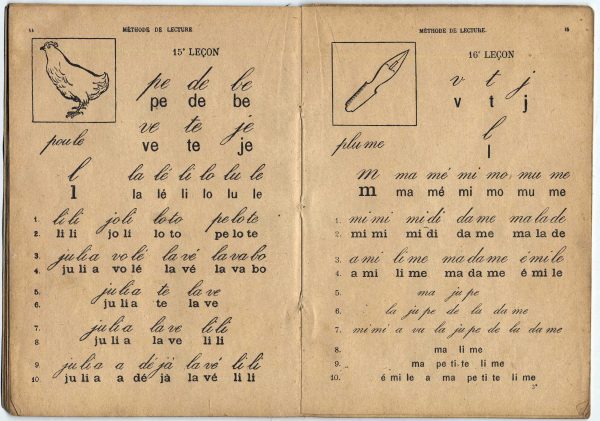 14 MÉTHODE DE LECTURE
15e LEÇON
pe de be
pe de be
ve te je
ve te je
poule
l la lé li lo lu le
l la lé li lo lu le
1. li li jo li lo to pe lo te
2. li li jo li lo to pe lo te
3. ju li a vo lé la vé la va bo
4. ju li a vo lé la vé la va bo
5. ju li a te la ve
6. ju li a te la ve
7. ju li a la ve li li
8. ju li a la ve li li
9. ju li a a dé jà la vé li li
10. ju li a a dé jà la vé li li
MÉTHODE DE LECTURE. 15
16e LEÇON
v t j
v t j
l
l
plume
m ma mé mi mo mu me
m ma mé mi mo mu me
1. mi mi mi di da me ma la de
2. mi mi mi di da me ma la de
3. a mi li me ma da me é mi le
4. a mi li me ma da me é mi le
5. ma ju pe
6. la ju pe de la da me
7. mi mi a vu la ju pe de la da me
8. ma li me
9. ma pe ti te li me
10. é mi le a ma pe ti te li me